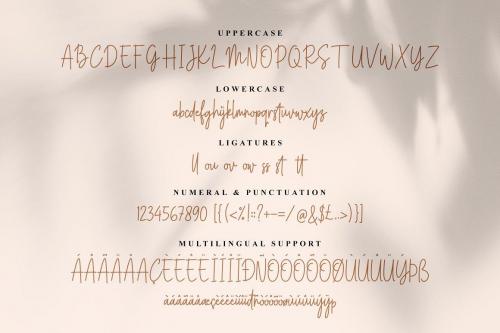 UPPERCASE
ABCDEFGHIJKLMNOPQRSTUVWXYZ
LOWERCASE
abcdefghijklmnopqrstuvwxyz
LIGATURES
U ou ov ow ss st tt
NUMERAL & PUNCTUATION
1234567890 [{(<%|::?+-=/@&$£..>)}]
MULTILINGUAL SUPPORT